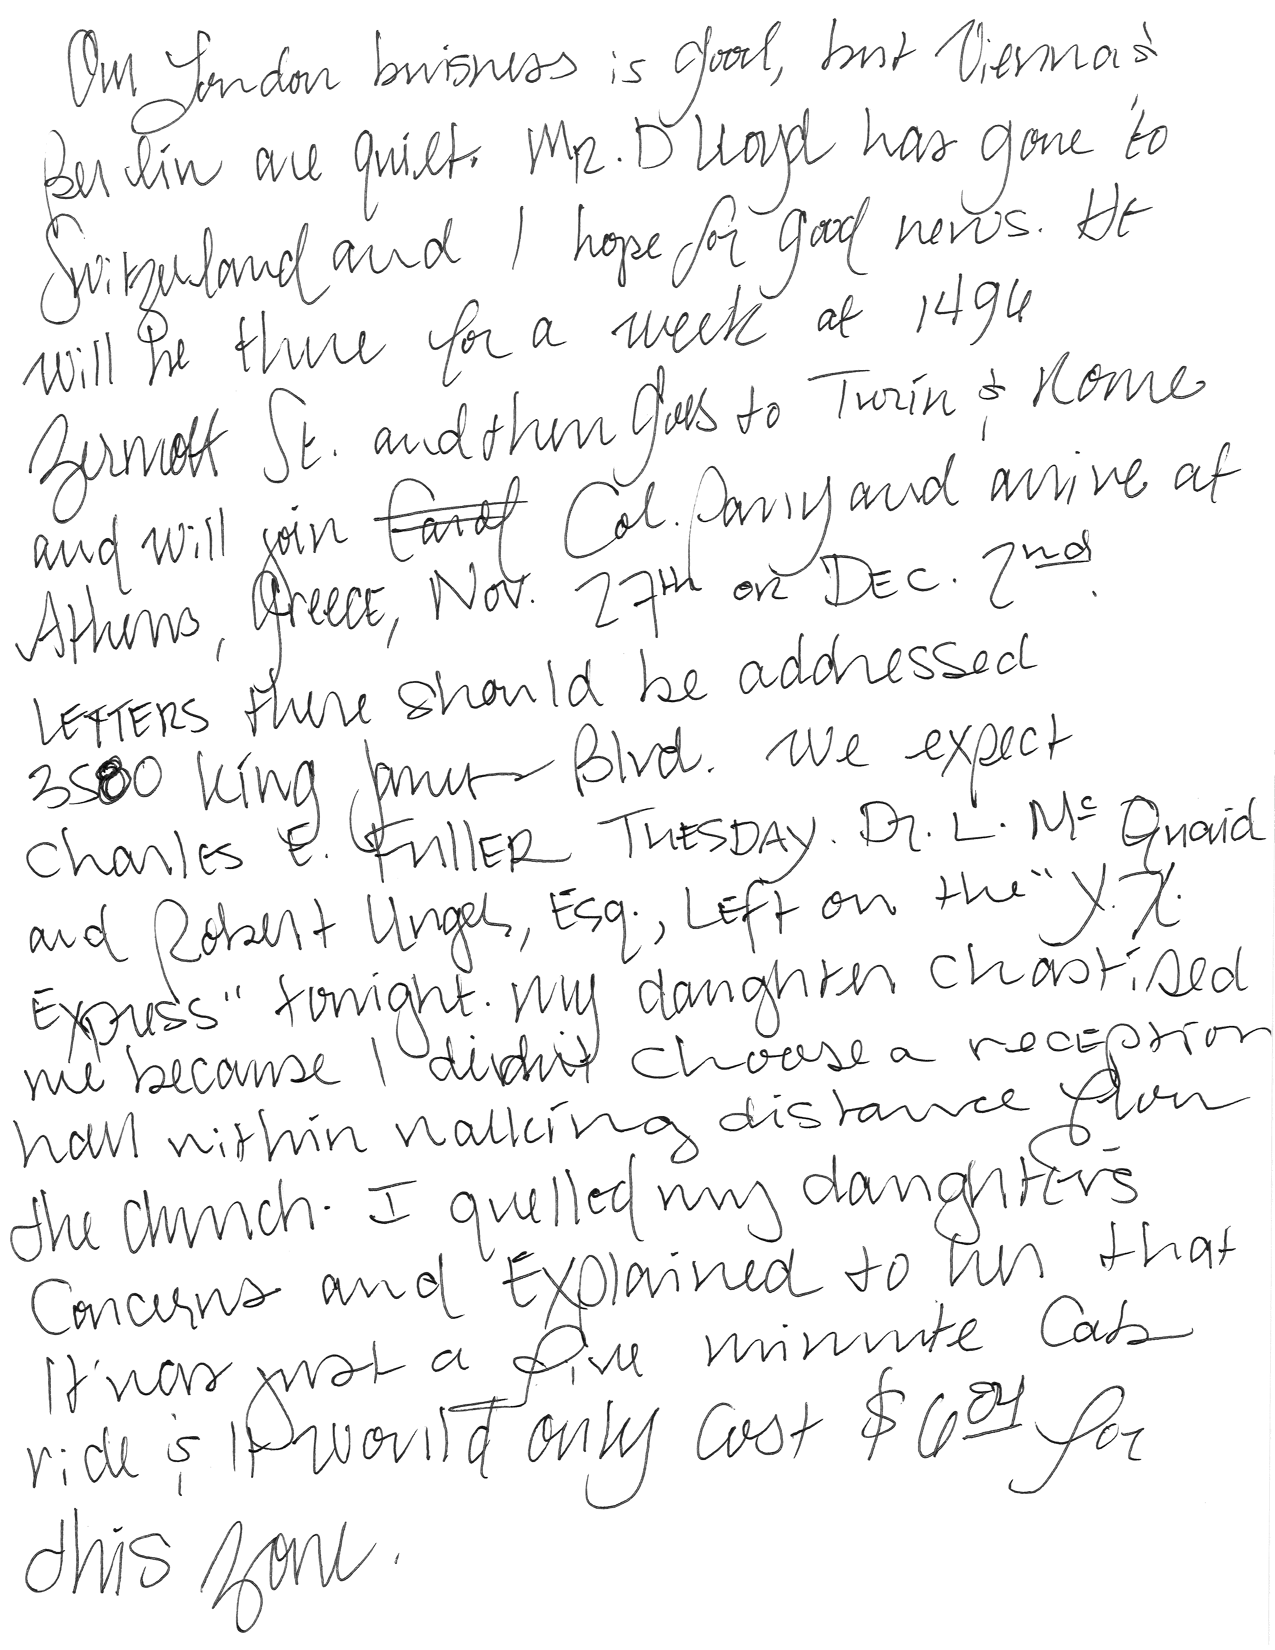 Our London buisness is good, but Vienna &
Berlin are quiet. Mr. D Lloyd has gone to
Switzerland and I hope for good news. He
will be there for a week at 1496
Zermott St. and then goes to Turin & Rome
and will join Col. Parry and arrive at
Athens, Greece, Nov. 27th or DEC. 2nd.
LETTERS there should be addressed
3580 King James Blvd. We expect
Charles E. FullER TUESDAY. Dr. L. Mc Quaid
and Robert Unger, Esq., Left on the "Y.X.
Express" tonight. My daughter chastised
me because I didn't choose a reception
hall within walking distance from
the church. I quelled my daughter's
Concerns and Explained to her that
It was just a five minute Cab
ride & It would only cost $6.04 for
this zone.